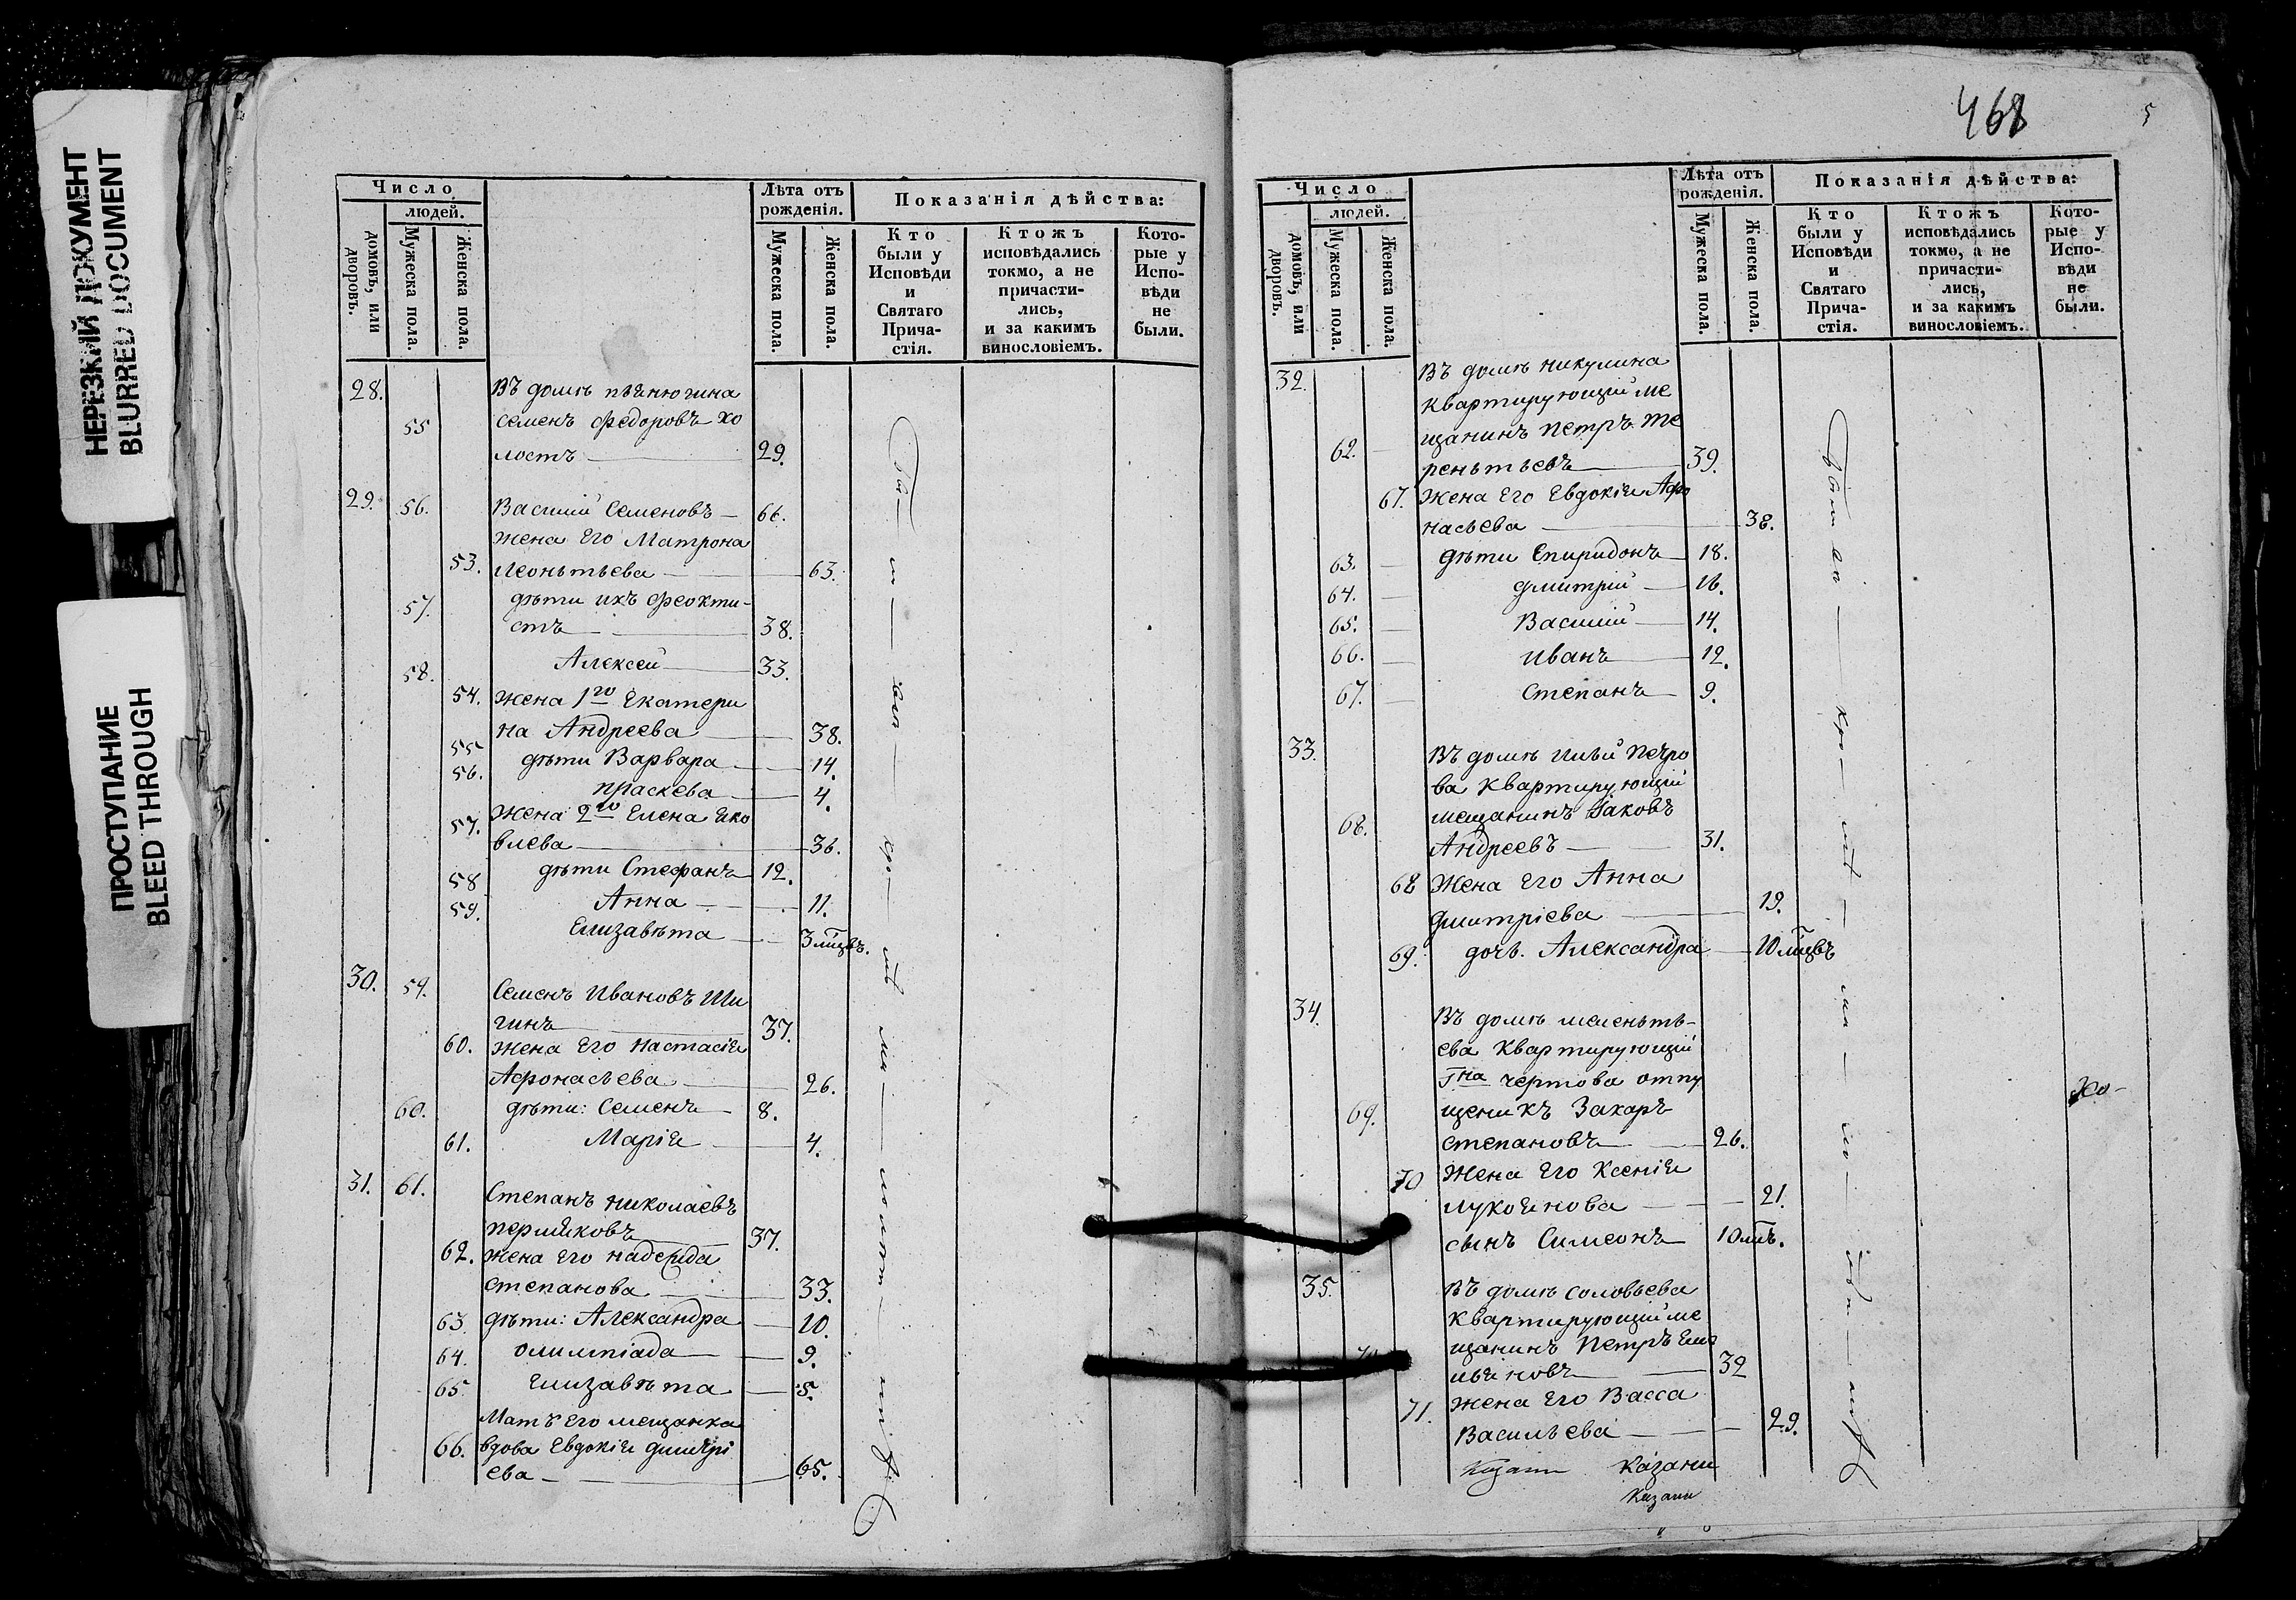 НЕРЕЗКИЙ ДОКУМЕНТ
BLURRED DOCUMENT
ПРОСТУПАНИЕ
BLEED THROUGH
Число
людей.
домовъ, или дворовъ.
Мужеска пола.
Женска пола.
Лѣта отъ рожденія.
Мужеска пола.
Женска пола.
Показанія дѣйства:
Кто были у Исповѣди и Святаго Прича-стія.
Ктожъ исповѣдались токмо, а не причасти-лись, и за какимъ винословіемъ.
Кото-рые у Испо-вѣди не были.
28. Въ домѣ
55 Семенъ Федоровъ хо
лостъ 29.
29. 56. Василій Семеновъ 66.
жена его Матрона
53. Леонтьева 63.
57. дѣти ихъ Феокти-
стъ 38.
58. Алексей 33.
54. жена 1го Екатери
на Андреева 38.
55 дѣти Варвара 14.
56. праскева 4.
57. Жена 2го Елена Яко
влева 36.
58 дѣти Стефанъ 12.
59. Анна 11.
Елизавѣта 3 мцвъ.
30. 59. Семенъ Ивановъ Ши
гинъ 37.
60. жена его Настасія
Афонасьева 26.
60. дѣти: Семенъ 8.
61. Марія 4.
31. 61. Степанъ Николаевъ
пермяковъ 37.
62. жена его надежда
степанова 33.
63. дѣти: Александра 10.
64. олимпіада 9.
65. Елизавѣта 5.
Мать его мещанка
66. вдова Евдокія дмитрі
ева 65.
468
5
Число
людей.
домовъ, или дворовъ.
Мужеска пола.
Женска пола.
Лѣта отъ рожденія.
Мужеска пола.
Женска пола.
Показанія дѣйства:
Кто были у Исповѣди и Святаго Прича-стія.
Ктожъ исповѣдались токмо, а не причасти-лись, и за какимъ винословіемъ.
Кото-рые у Испо-вѣди не были.
32. Въ домѣ никулина
квартирующій ме
62. щанинъ петръ Те
рентьевъ 39.
67. жена его Евдокія Афо
насьева 38.
63. дѣти Спиридонъ 18.
64. дмитрій 16.
65. Василій 14.
66. иванъ 12.
67. степанъ 9.
33. Въ домѣ Ильи Петро
ва квартирующій
68. мещанинъ Іаковъ
Андреевъ 31.
68 Жена его Анна
дмитріева 19.
69. дочь. Александра 10 мцвъ
34. Въ домѣ меленть-
ева квартирующій
Гна чертова отпу
69. щеникъ Захаръ
степановъ 26.
70 Жена его Ксенія
лукоянова 21.
сынъ Симеонъ 10 мцъ.
35. Въ домѣ соловьева
квартирующій ме
щанинъ петръ Еме
льяновъ 32
71. жена его Васса
Васильева 29.
Казани Казани
Казани